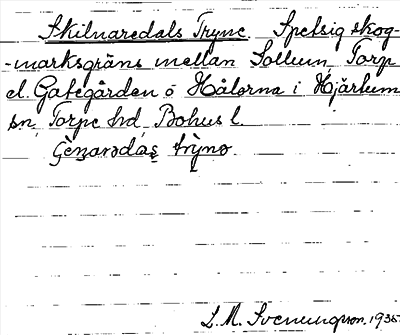 Skilnaredals Tryne. Spetsig skog-
-marksgräns mellan Sollum Torp
el. Gategården o Hålorna i Hjärtum
sn, Torpe hd Bohus l.
tryno
L. M. Svenungson. 1935